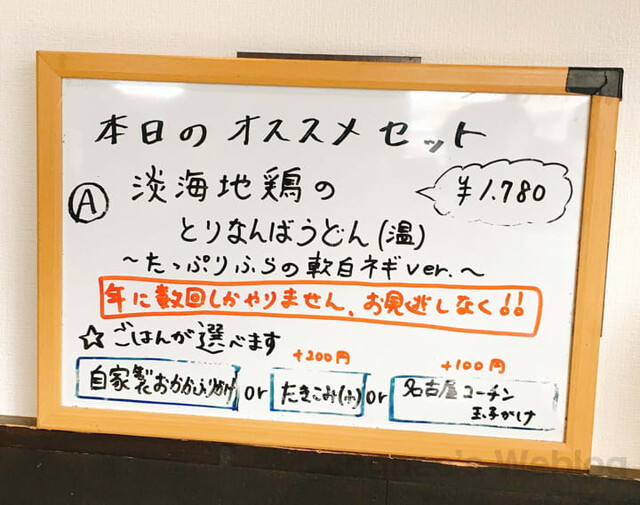 本日のオススメセット
Ⓐ 淡海地鶏の
¥1.780
とりなんばうどん(温)
～たっぷりふらの軟白ネギver.～
年に数回しかやりません、お見逃しなく!!
☆ごはんが選べます
+200円 +100円
自家製おかかふりかけ or たきこみ(小) or 名古屋コーチン
玉子かけ
Weblog